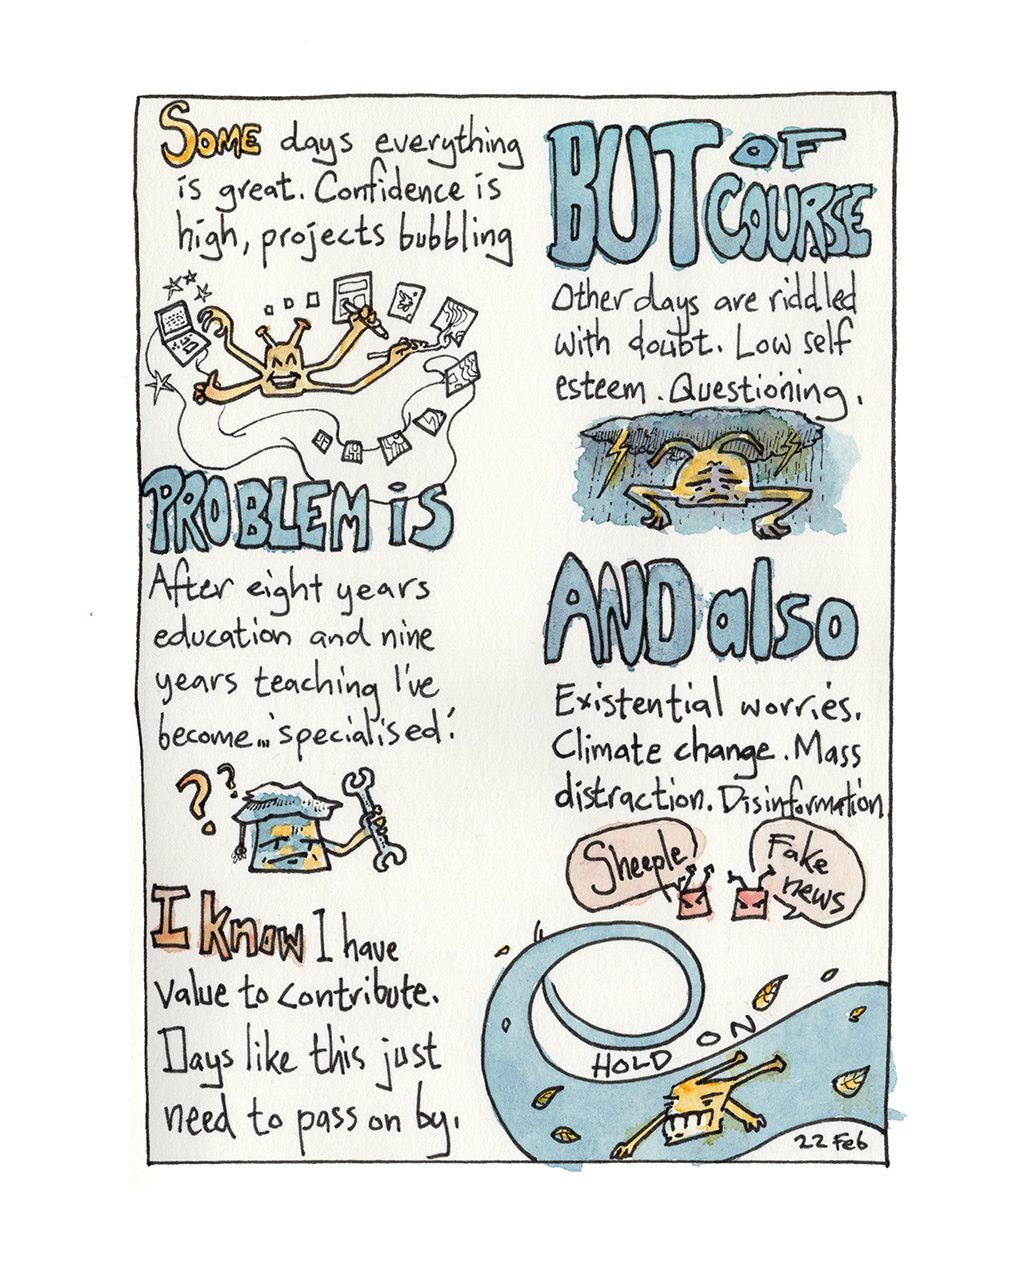 SOME days everything
is great. Confidence is
high, projects bubbling
BUT OF
COURSE
Other days are riddled
with doubt. Low self
esteem. Questioning.
PROBLEM is
After eight years
education and nine
years teaching I've
become...'specialised'.
? ?
AND also
Existential worries.
Climate change. Mass
distraction. Disinformation
Sheeple
Fake
news
I know I have
value to contribute.
Days like this just
need to pass on by.
HOLD ON
22 Feb